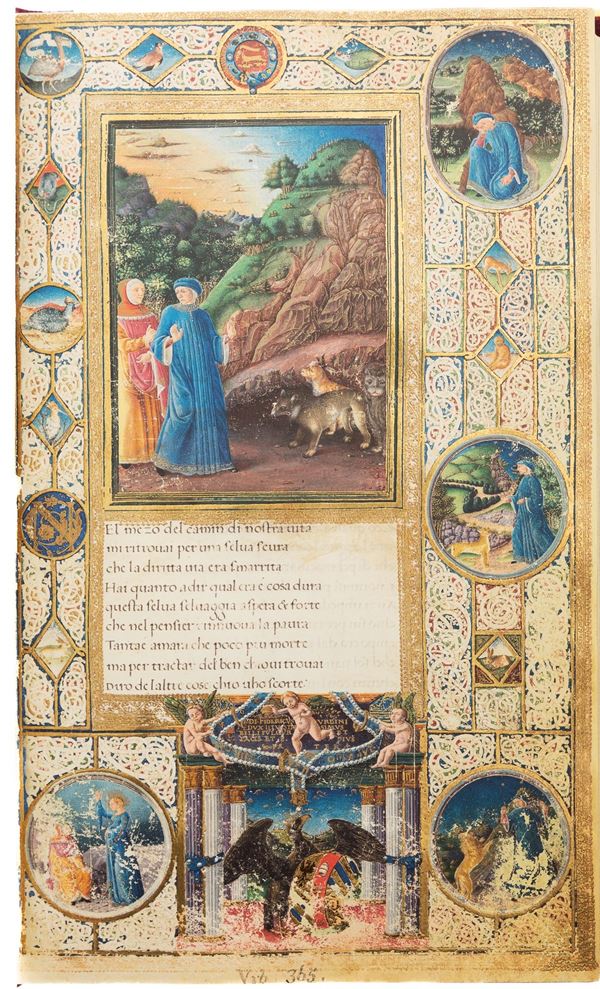 El mezo del camin di nostra uita
mi ritrouai per una selua scura
che la diritta uia era smarrita
Hai quanto adir qual era è cosa dura
questa selua seluaggia aspera & forte
che nel pensier rinuoua la paura
Tantæ amara che poco piu morte
ma per tractar del ben chioui trouai
Diro de laltre cose chio uho scorte
VRBINI
Vrb 365.